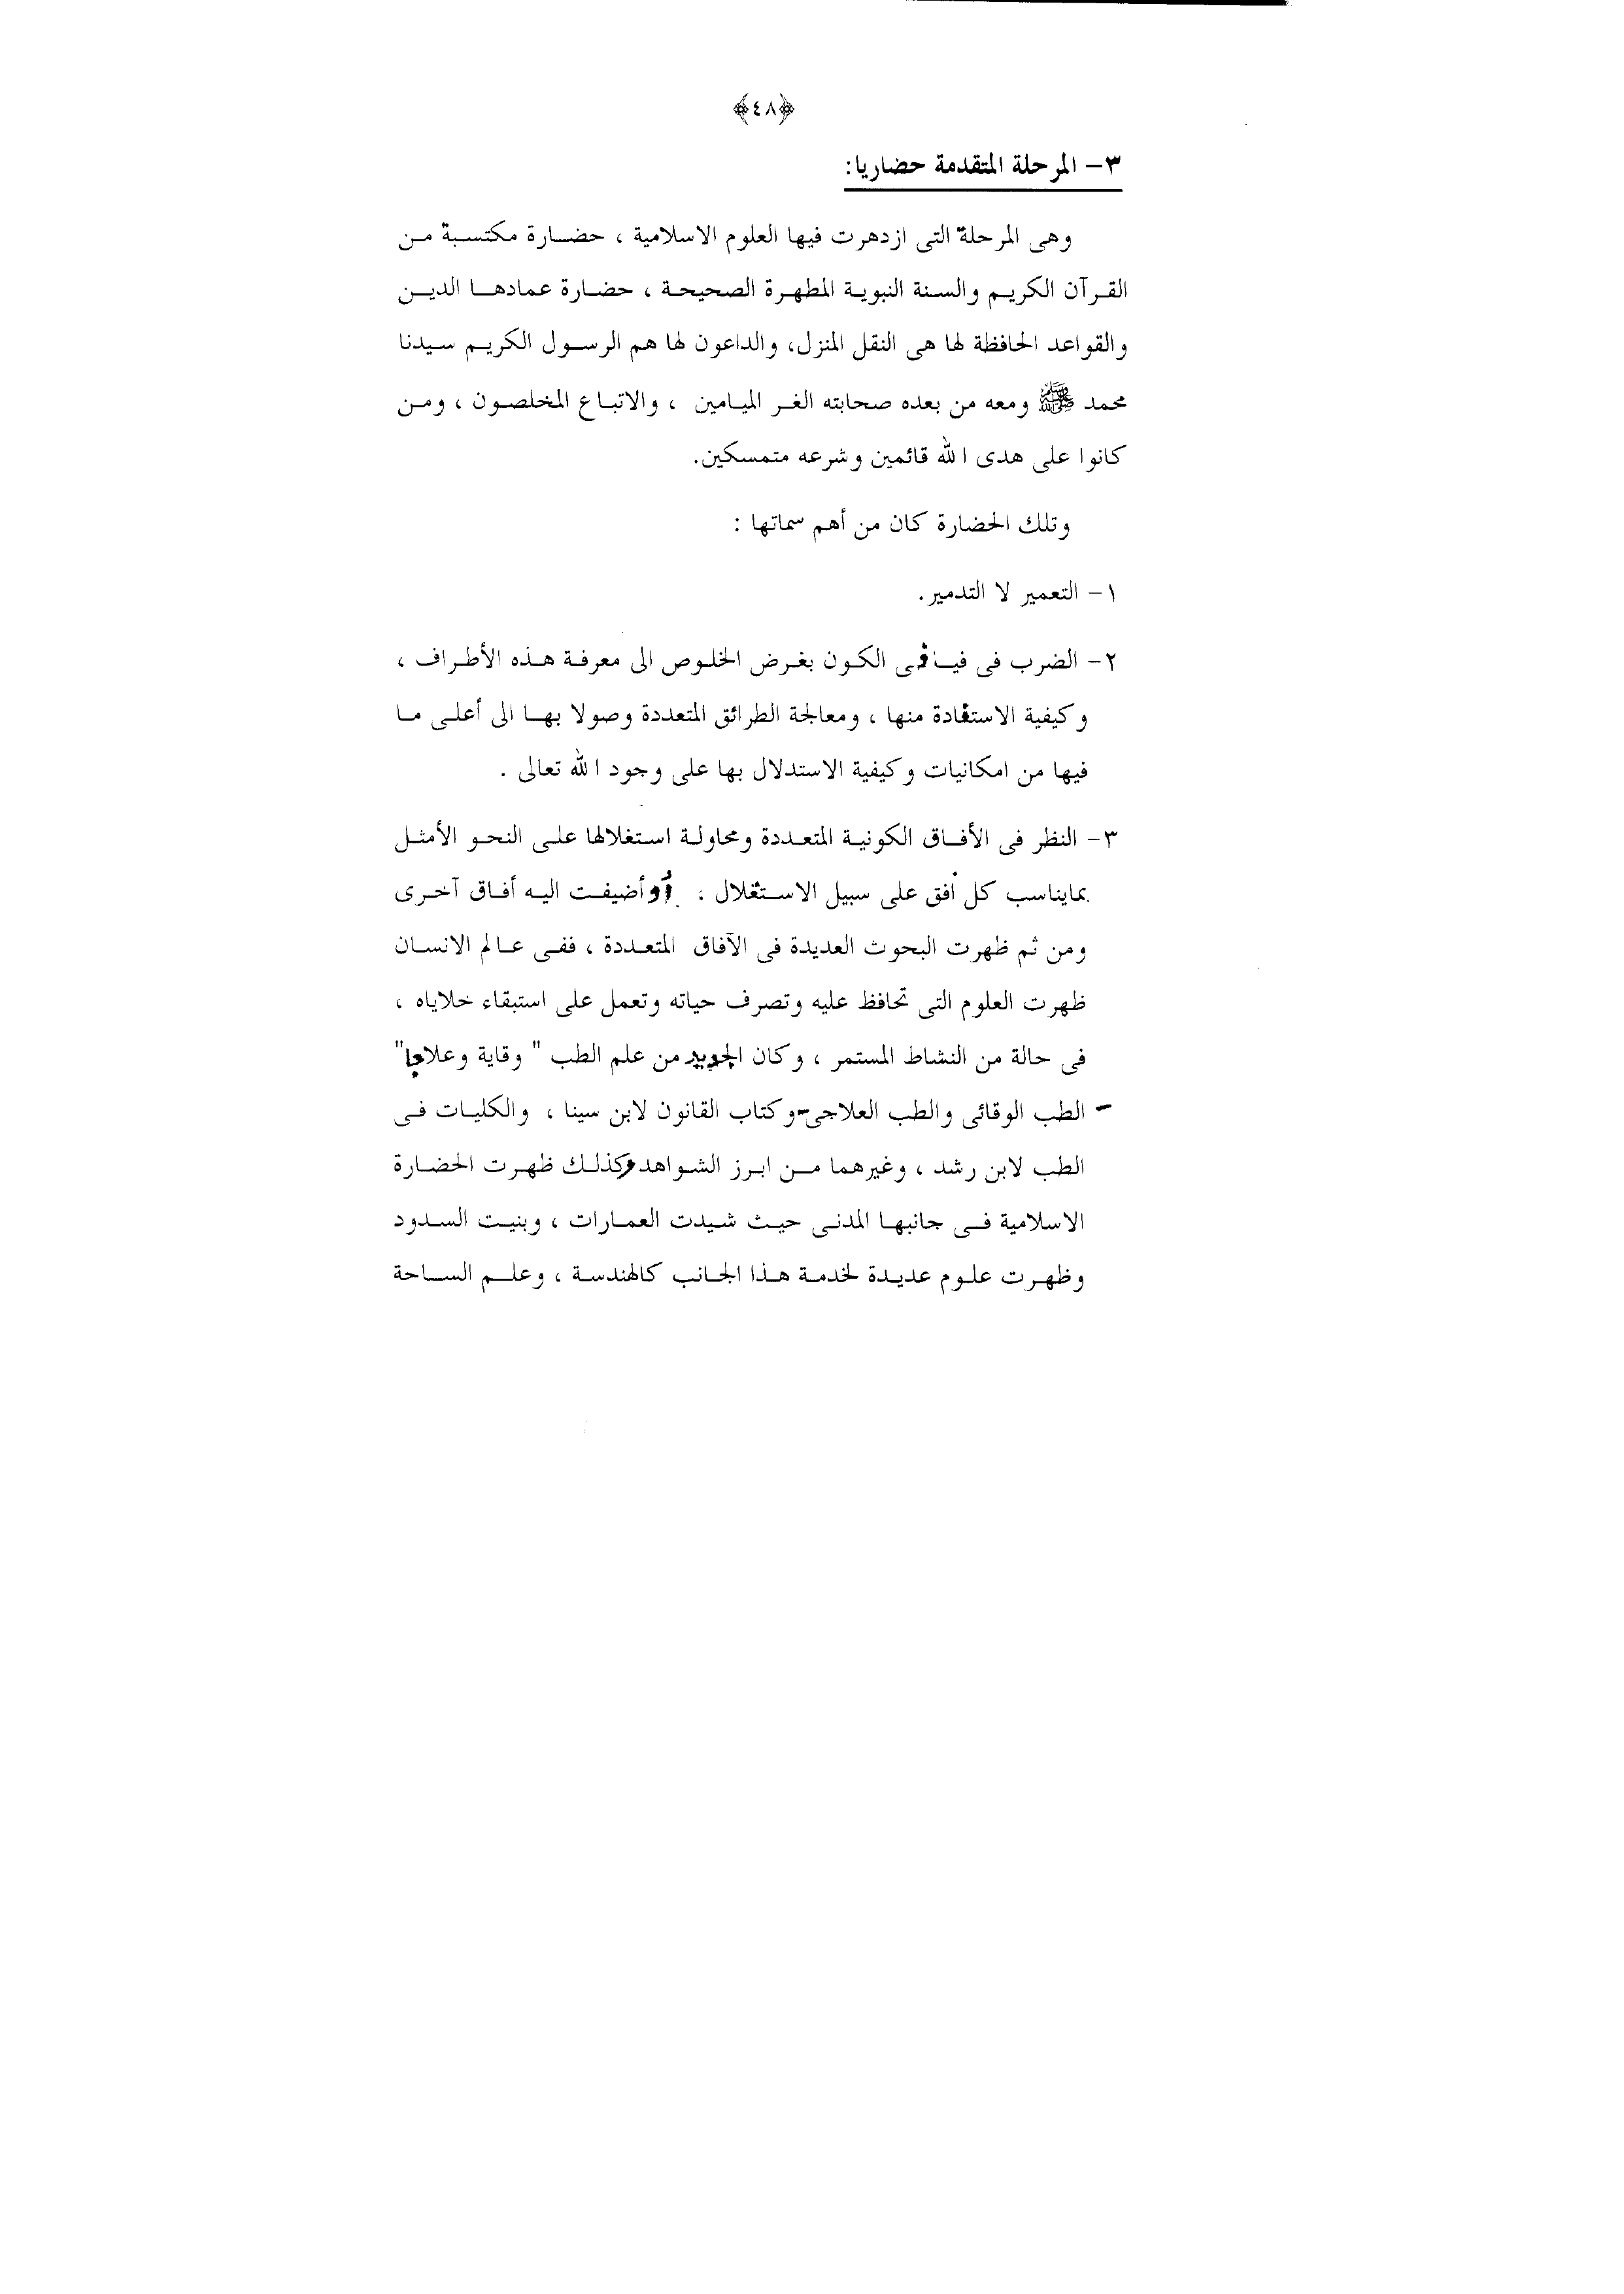 ﴿٤٨﴾
٣- المرحلة المتقدمة حضاريا:
وهى المرحلة التى ازدهرت فيها العلوم الاسلامية ، حضارة مكتسبة من
القرآن الكريم والسنة النبوية المطهرة الصحيحة ، حضارة عمادها الدين
والقواعد الحافظة لها هى النقل المنزل، والداعون لها هم الرسول الكريم سيدنا
محمد ﷺ ومعه من بعده صحابته الغر الميامين ، والاتباع المخلصون ، ومن
كانوا على هدى الله قائمين وشرعه متمسكين.
وتلك الحضارة كان من أهم سماتها :
١- التعمير لا التدمير.
٢- الضرب فى فيافى الكون بغرض الخلوص الى معرفة هذه الأطراف ،
وكيفية الاستفادة منها ، ومعالجة الطرائق المتعددة وصولا بها الى أعلى ما
فيها من امكانيات وكيفية الاستدلال بها على وجود الله تعالى .
٣- النظر فى الأفاق الكونية المتعددة ومحاولة استغلالها على النحو الأمثل
بمايناسب كل أفق على سبيل الاستغلال ، أو أضيفت اليه أفاق آخرى
ومن ثم ظهرت البحوث العديدة فى الآفاق المتعددة ، ففى عالم الانسان
ظهرت العلوم التى تحافظ عليه وتصرف حياته وتعمل على استبقاء خلاياه ،
فى حالة من النشاط المستمر ، وكان الجديد من علم الطب " وقاية وعلاجا"
- الطب الوقائى والطب العلاجى- وكتاب القانون لابن سينا ، والكليات فى
الطب لابن رشد ، وغيرهما من ابرز الشواهد وكذلك ظهرت الحضارة
الاسلامية فى جانبها المدنى حيث شيدت العمارات ، وبنيت السدود
وظهرت علوم عديدة لخدمة هذا الجانب كالهندسة ، وعلم الساحة